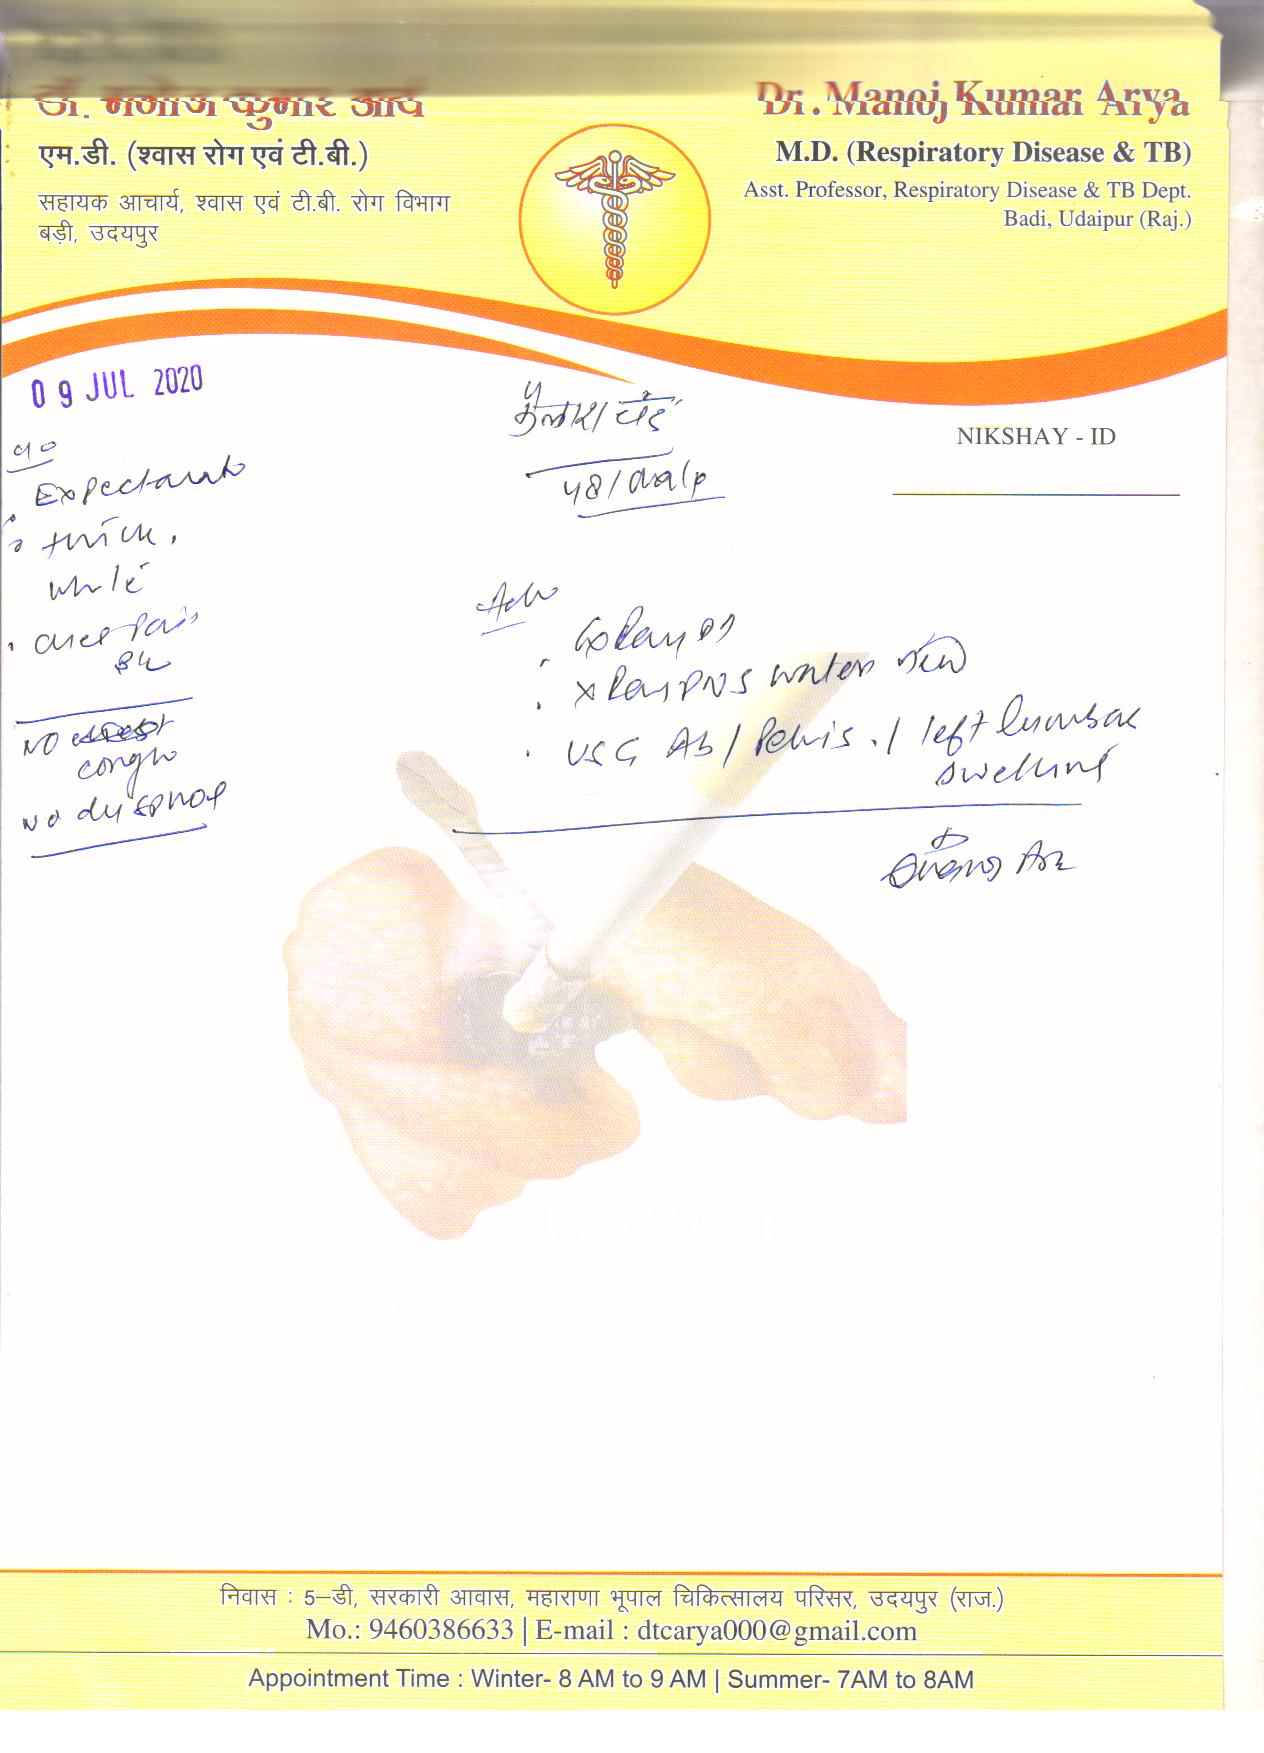 डॉ. मनोज कुमार आर्य
एम.डी. (श्वास रोग एवं टी.बी.)
सहायक आचार्य, श्वास एवं टी.बी. रोग विभाग
बड़ी, उदयपुर
Dr. Manoj Kumar Arya
M.D. (Respiratory Disease & TB)
Asst. Professor, Respiratory Disease & TB Dept.
Badi, Udaipur (Raj.)
09 JUL 2020
NIKSHAY - ID
48/
Expectorat
thick,
white
Pain
NO
cough
No dyspnoe
Adv
X Ray PNS water view
USG Ab/Pelvis / left lumbar
swelling
निवास : 5–डी, सरकारी आवास, महाराणा भूपाल चिकित्सालय परिसर, उदयपुर (राज.)
Mo.: 9460386633 | E-mail : dtcarya000@gmail.com
Appointment Time : Winter- 8 AM to 9 AM | Summer- 7AM to 8AM